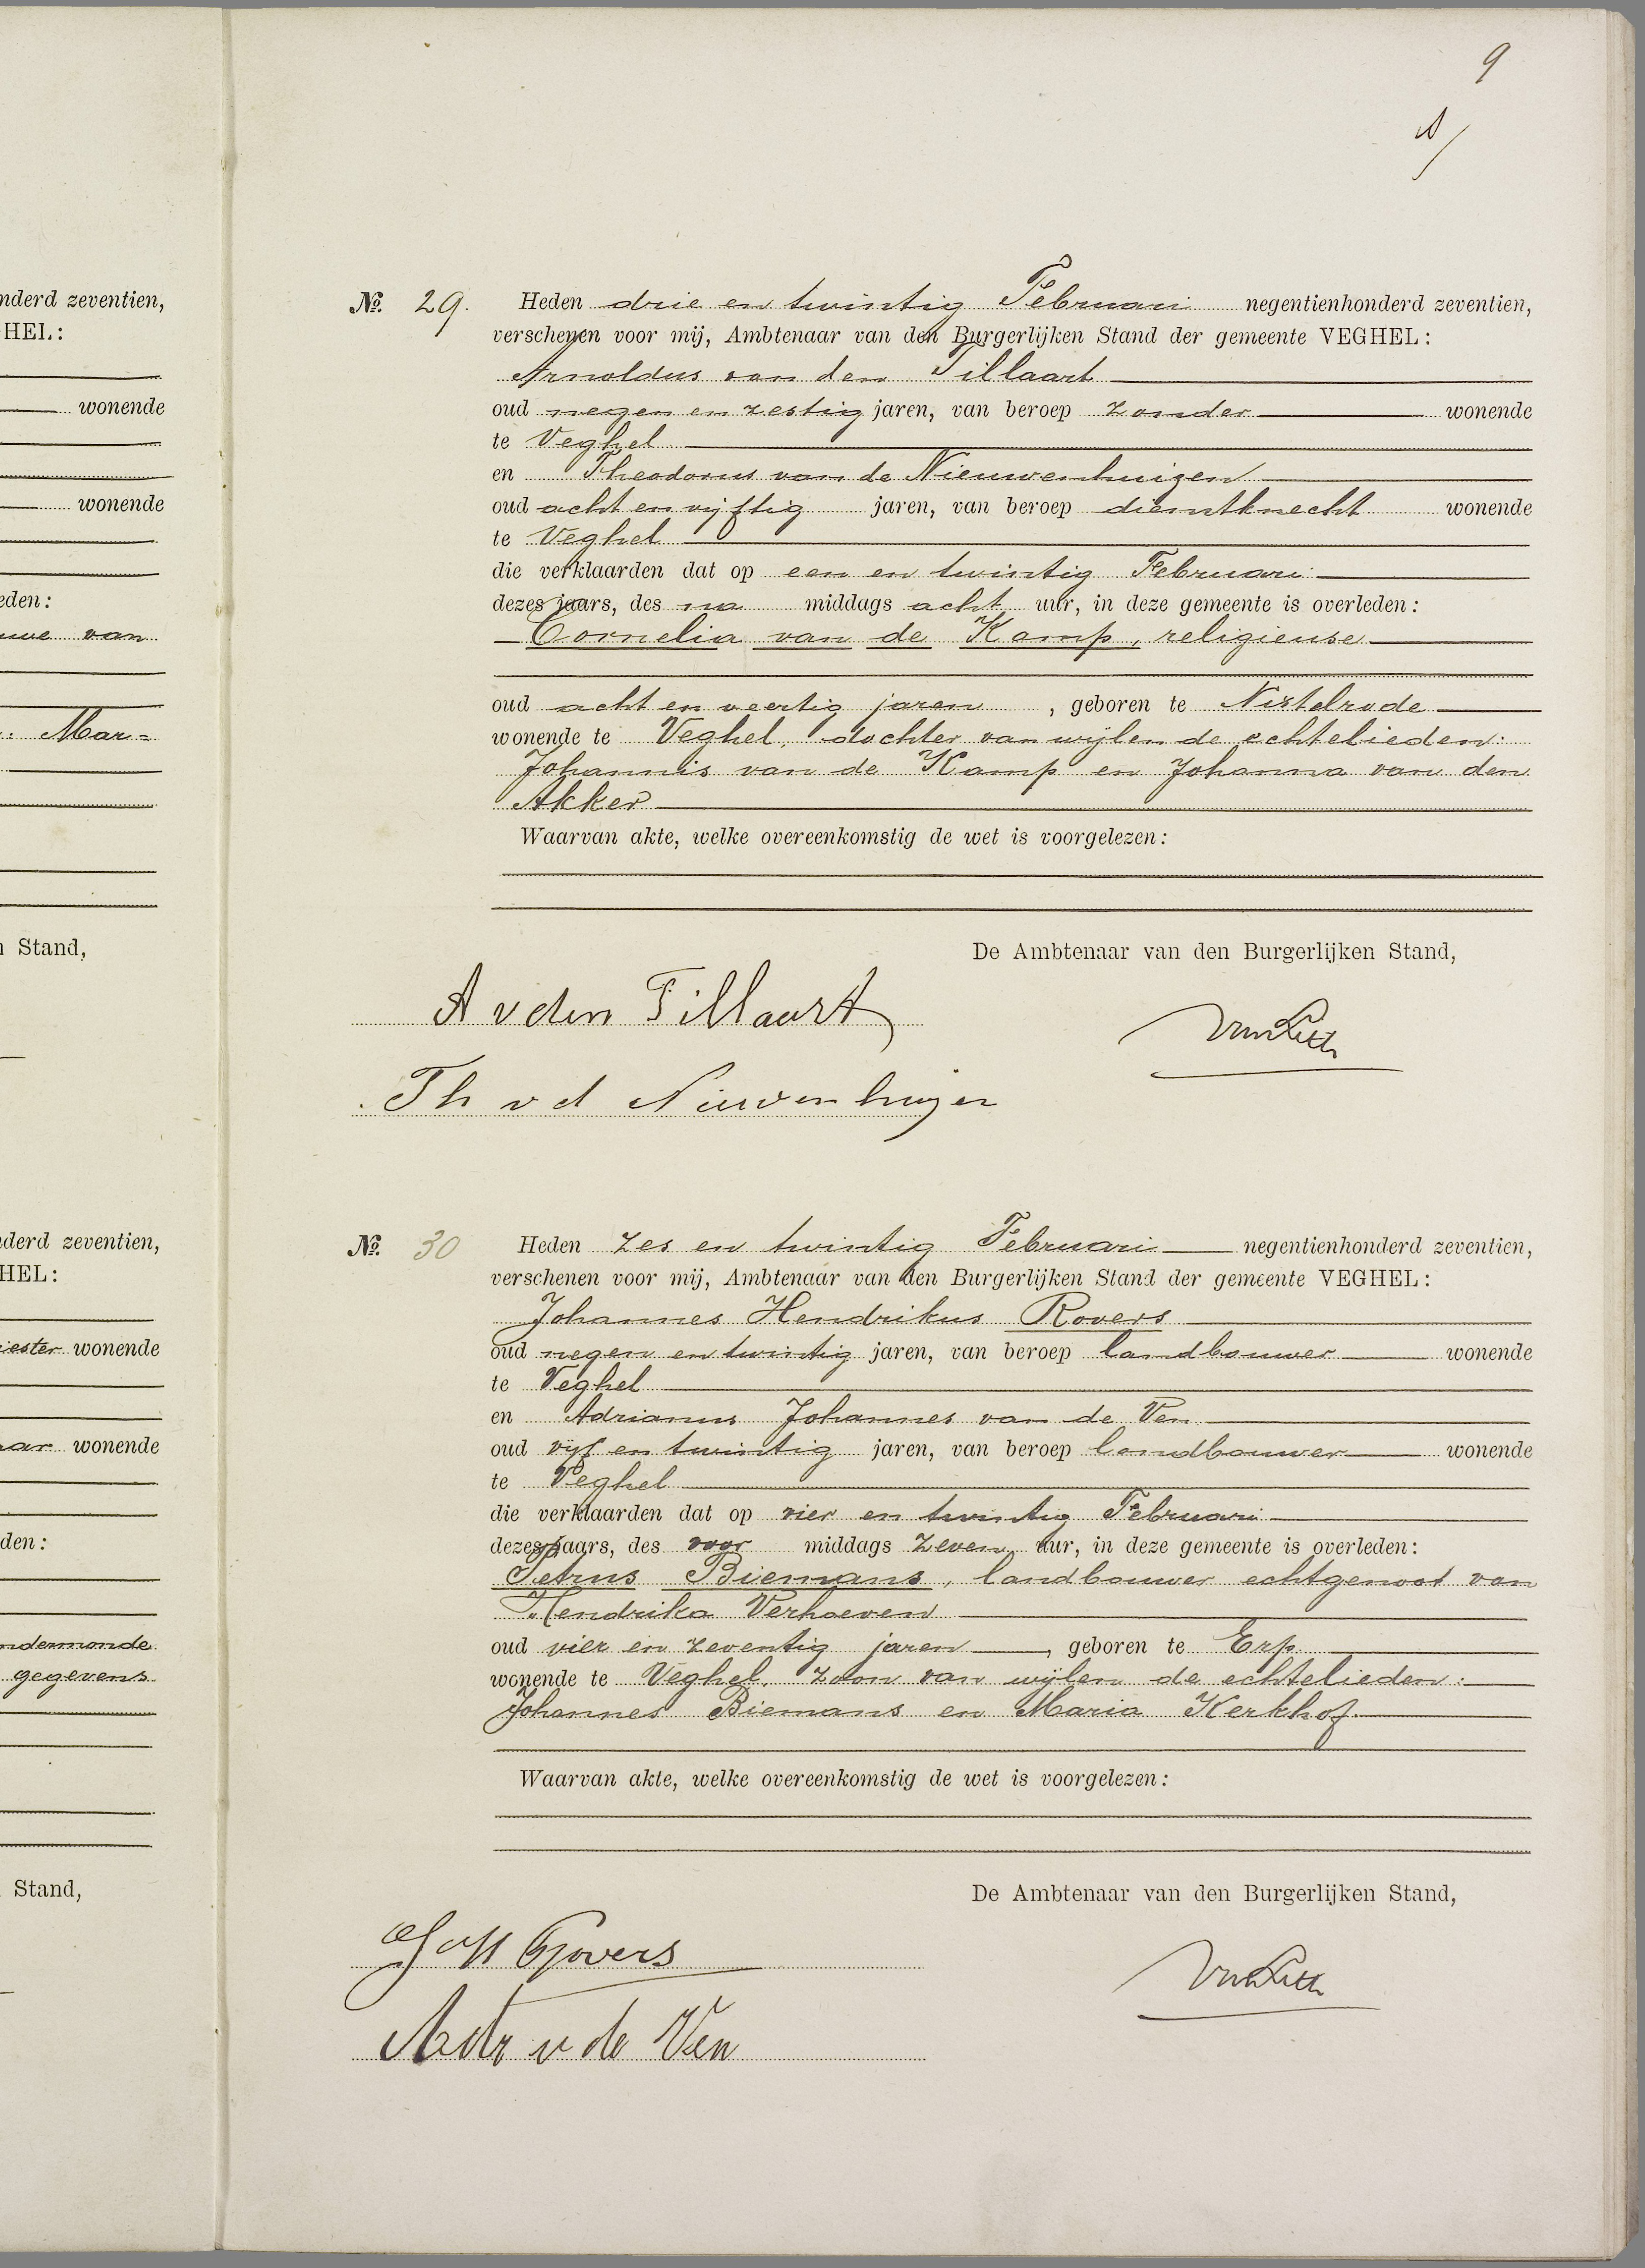 9
nderd zeventien,
HEL:
wonende
wonende
eden:
uwe van
Mar=
n Stand,
derd zeventien,
HEL:
iester wonende
aar wonende
den:
ndermonde
gegevens
Stand,
No. 29. Heden drie en twintig Februari negentienhonderd zeventien,
verschenen voor mij, Ambtenaar van den Burgerlijken Stand der gemeente VEGHEL:
Arnoldus van den Tillaart
oud negen en zestig jaren, van beroep zonder wonende
te Veghel
en Theodorus van de Nieuwenhuizen
oud acht en vijftig jaren, van beroep dienstknecht wonende
te Veghel
die verklaarden dat op een en twintig Februari
dezes jaars, des na middags acht uur, in deze gemeente is overleden:
Cornelia van de Kamp, religieuse
oud acht en veertig jaren, geboren te Nistelrode
wonende te Veghel, dochter van wijlen de echtelieden:
Johannis van de Kamp en Johanna van den
Akker
Waarvan akte, welke overeenkomstig de wet is voorgelezen:
De Ambtenaar van den Burgerlijken Stand,
A v den Tillaart
Th v d Nieuwenhuijzen
No. 30 Heden zes en twintig Februari negentienhonderd zeventien,
verschenen voor mij, Ambtenaar van den Burgerlijken Stand der gemeente VEGHEL:
Johannes Hendrikus Rovers
oud negen en twintig jaren, van beroep landbouwer wonende
te Veghel
en Adrianus Johannes van de Ven
oud vijf en twintig jaren, van beroep landbouwer wonende
te Veghel
die verklaarden dat op vier en twintig Februari
dezes jaars, des voor middags zeven uur, in deze gemeente is overleden:
Petrus Biemans, landbouwer echtgenoot van
Hendrika Verhoeven
oud vier en zeventig jaren, geboren te Erp
wonende te Veghel, zoon van wijlen de echtelieden:
Johannes Biemans en Maria Kerkhof
Waarvan akte, welke overeenkomstig de wet is voorgelezen:
De Ambtenaar van den Burgerlijken Stand,
J H Rovers
Adr v de Ven